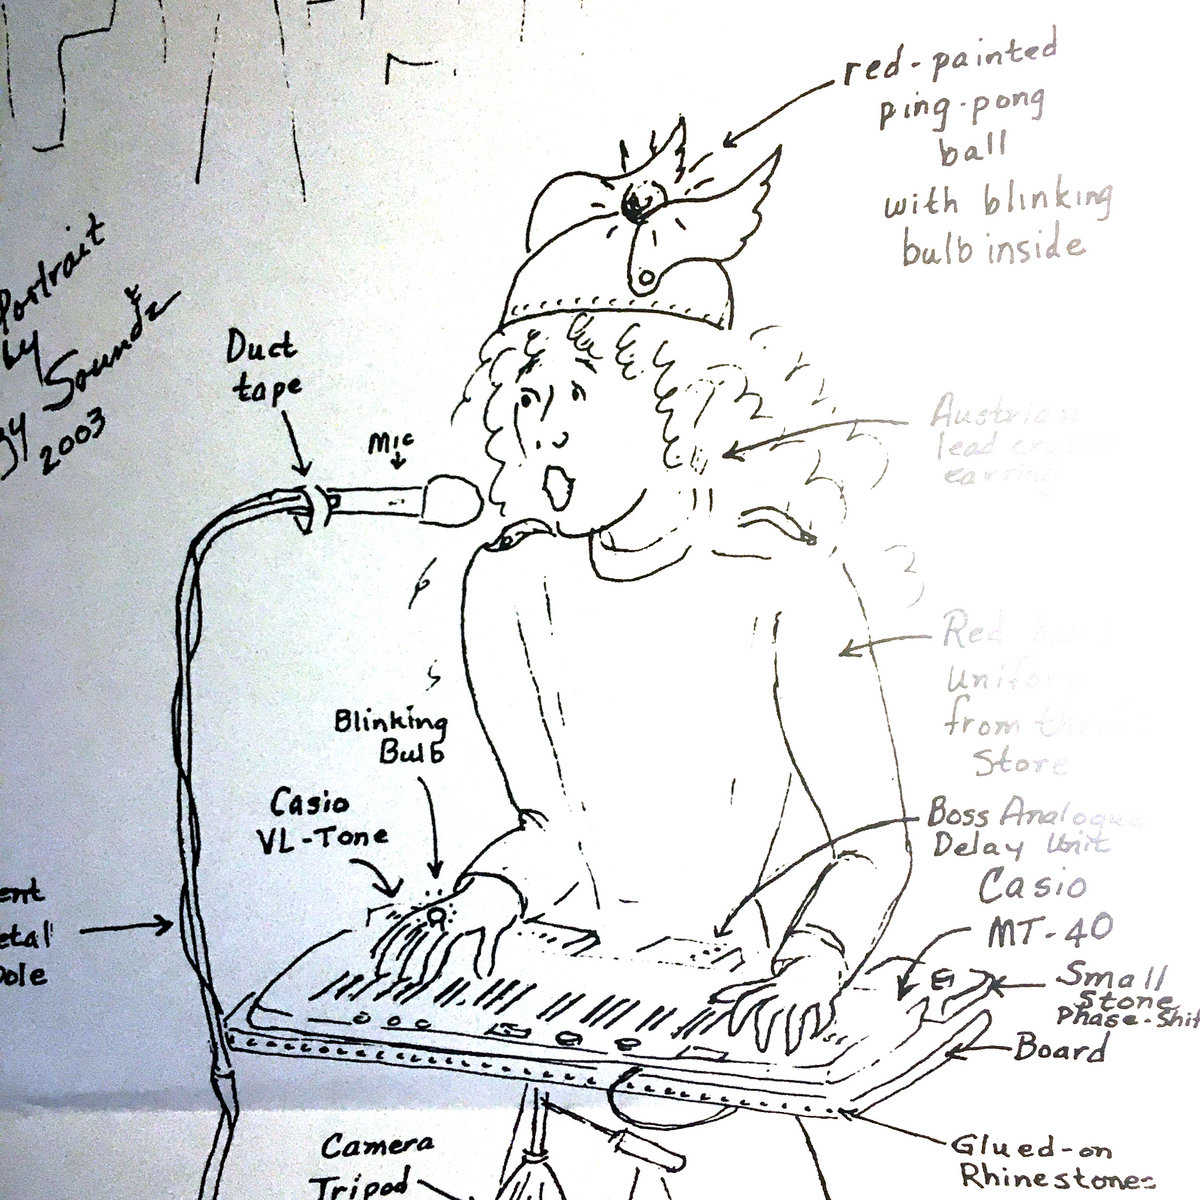 red-painted
ping-pong
ball
with blinking
bulb inside
Portrait
by
Soundz
2003
Duct
tape
Mic
Austrian
lead crystal
earring
Red
Uniform
from
Store
Blinking
Bulb
Casio
VL-Tone
Boss Analogue
Delay Unit
Casio
MT-40
Small
Stone
Phase-Shif
Board
Glued-on
Rhinestones
Camera
Tripod